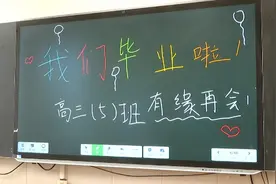 我们毕业啦！
高三(5)班有缘再会！